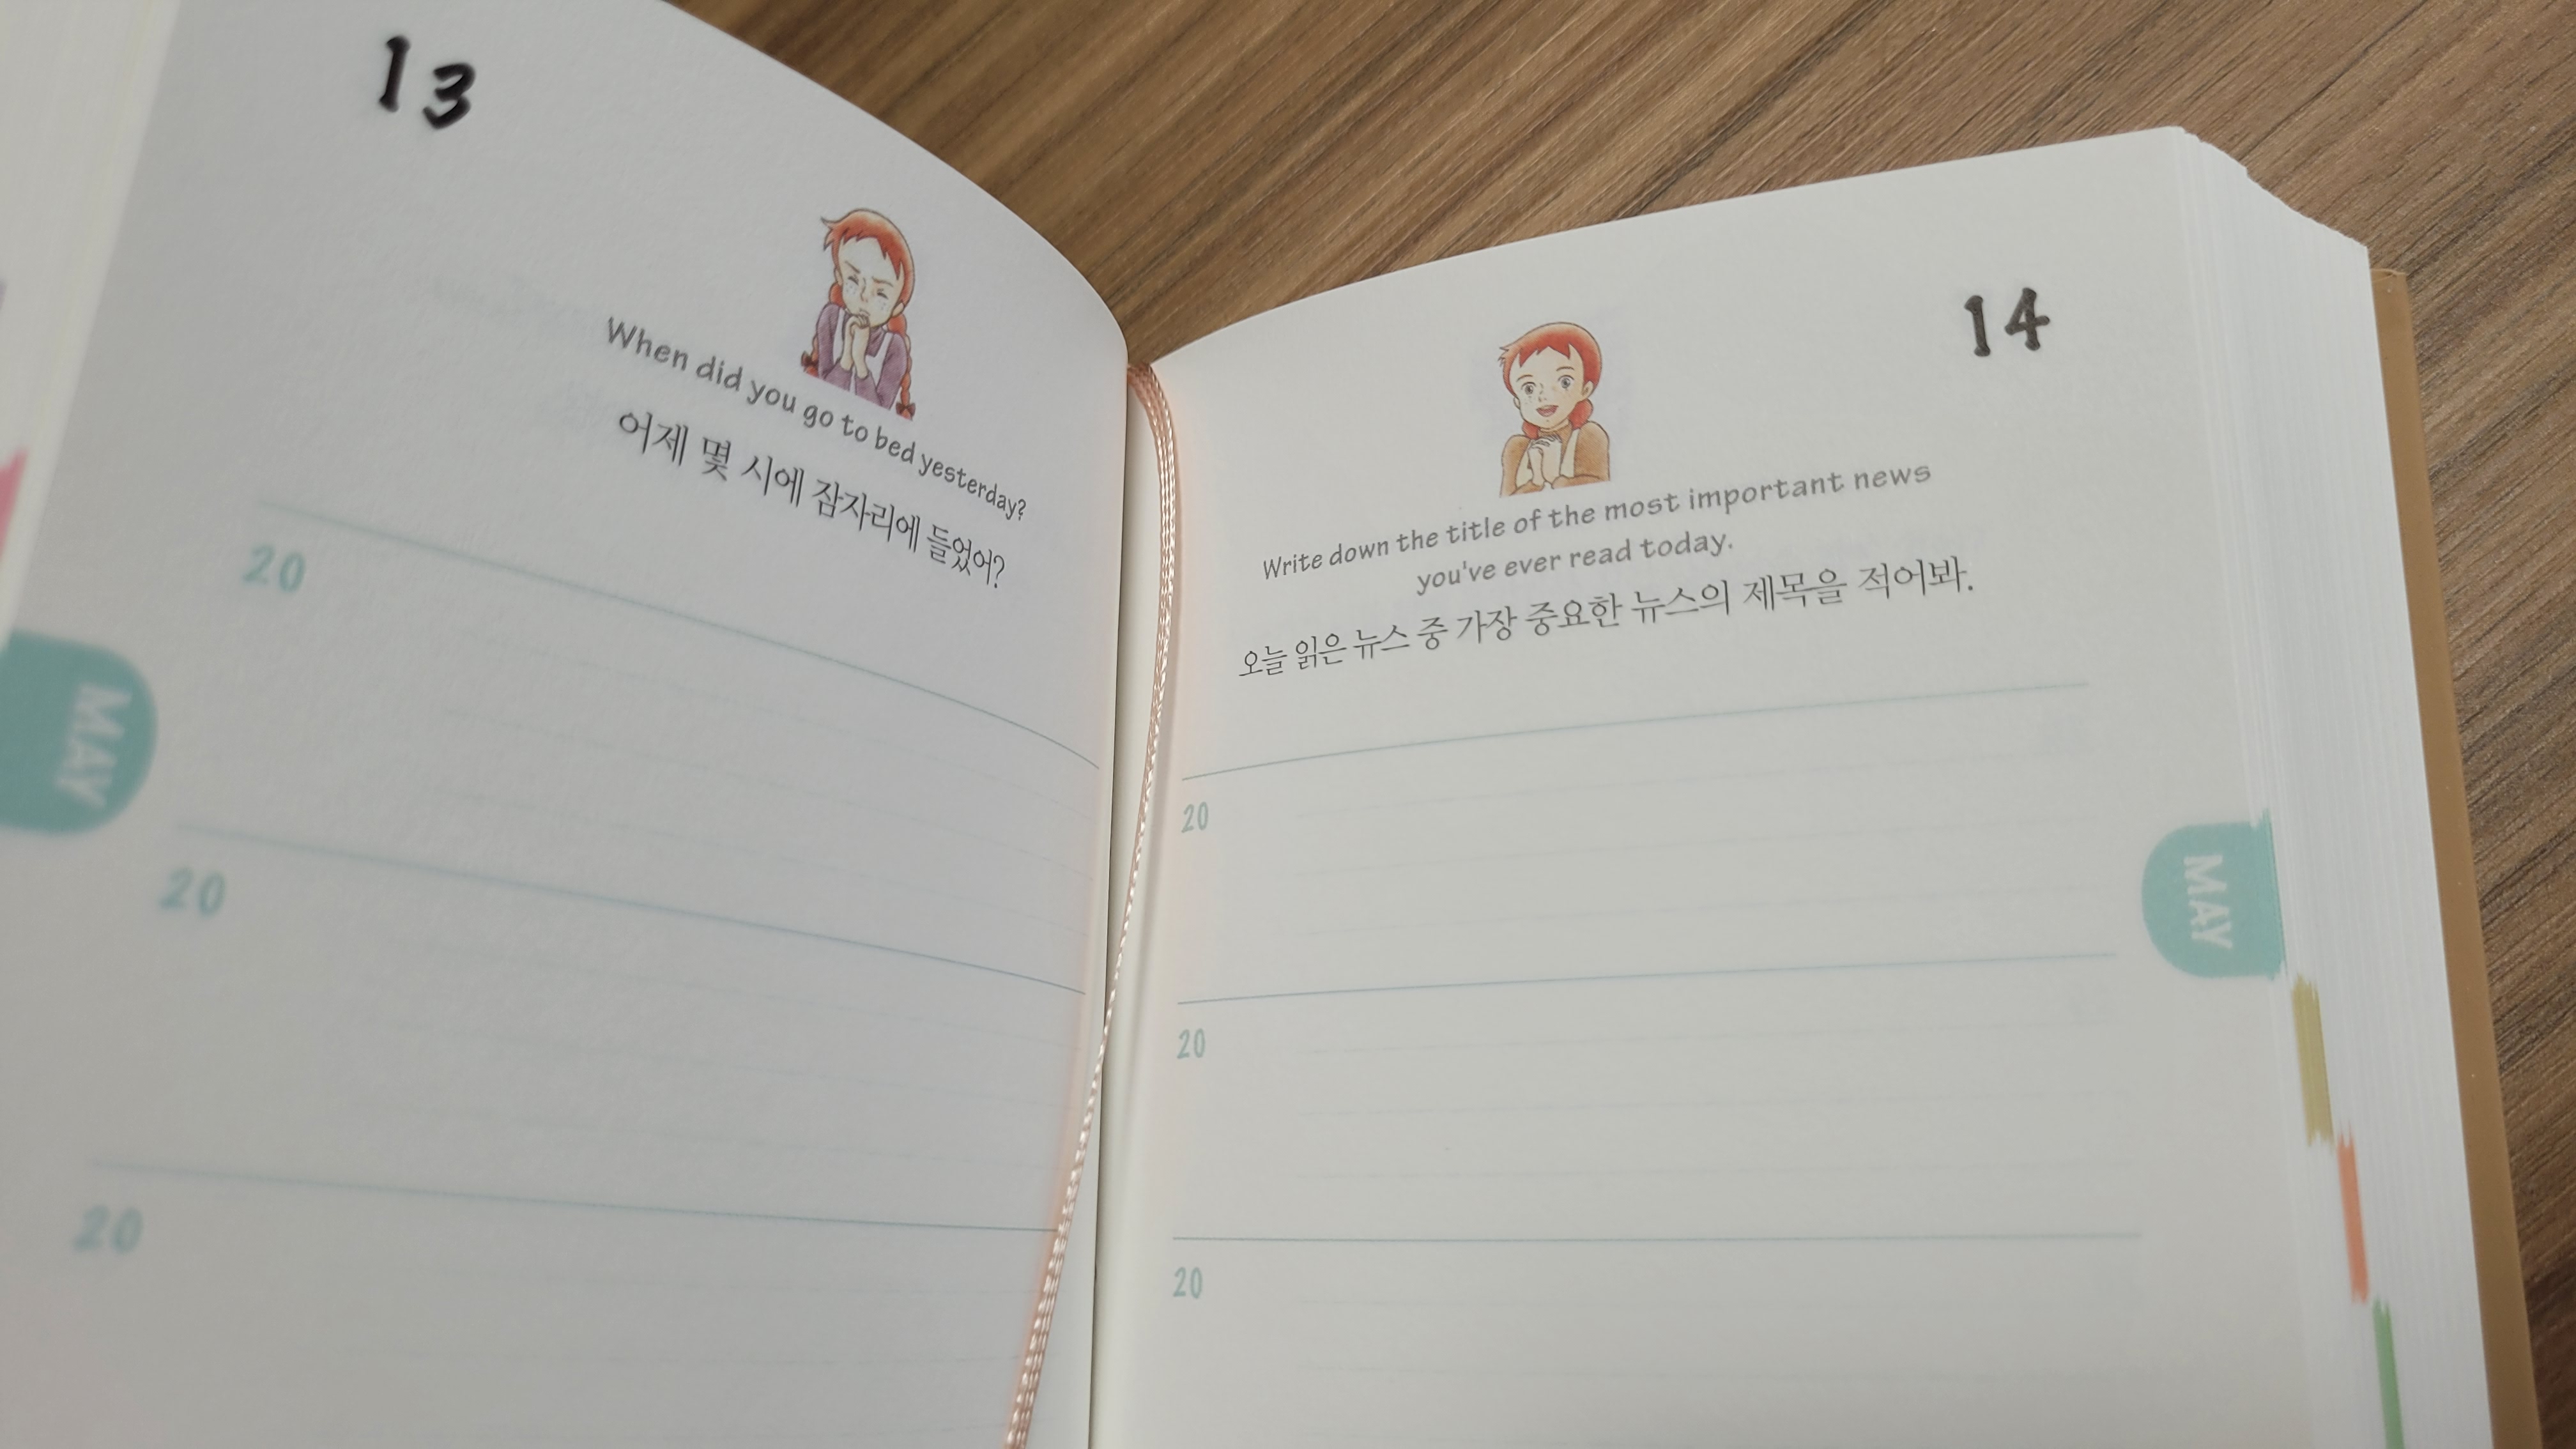 13
When did you go to bed yesterday?
어제 몇 시에 잠자리에 들었어?
20
20
20
MAY
14
Write down the title of the most important news
you've ever read today.
오늘 읽은 뉴스 중 가장 중요한 뉴스의 제목을 적어봐.
20
20
20
MAY